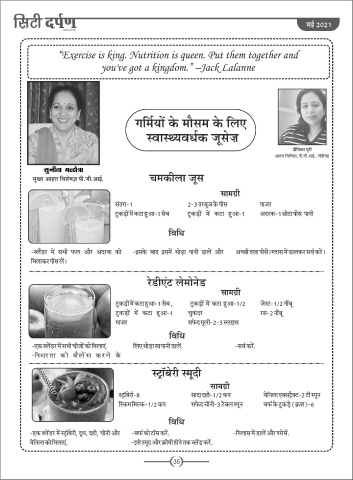 सिटी दर्पण
मई 2021
"Exercise is king. Nutrition is queen. Put them together and
you've got a kingdom." –Jack Lalanne
गर्मियों के मौसम के लिए
स्वास्थ्यवर्धक जूसेज़
सुनीता मल्होत्रा
मुख्य आहार विशेषज्ञ पी.जी.आई.
दीपिका पुरी
आहार विशेषज्ञ, पी.जी.आई., चंडीगढ़
चमकीला जूस
सामग्री
संतरा-1
2-3 तरबूज के पीस
गाजर
टुकड़ों में कटा हुआ-1 सेब
टुकड़ों में कटा हुआ-1
अदरक-1 छोटा पीस
पानी
विधि
-ब्लेंडर में सभी फल और अदरक को
मिलाकर पीस लें।
-इसके बाद इसमें थोड़ा पानी डालें और
अच्छी तरह पीसें। ग्लास में डालकर सर्व करें।
रेडीएंट लेमोनेड
सामग्री
टुकड़ों में कटा हुआ-1 सेब,
टुकड़ों में कटा हुआ-1/2
जेस्ट-1/2 नींबू
टुकड़ों में कटा हुआ-1
चुकंदर
रस-2 नींबू
गाजर
सफेद मूली-2-3 स्लाइस
विधि
-एक ब्लेंडर में सभी चीजों को मिलाएं,
-स्थिरता को बैलेंस करने के
लिए थोड़ा सा पानी डालें.
-सर्व करें.
स्ट्रॉबेरी स्मूदी
सामग्री
स्ट्रॉबेरी-8
सादा दही-1/2 कप
वेनिला एक्सट्रैक्ट-2 टी स्पून
स्किम मिल्क-1/2 कप
सफेद चीनी-3 टेबल स्पून
बर्फ के टुकड़े (क्रश)-6
विधि
-एक ब्लेंडर में स्ट्रॉबेरी, दूध, दही, चीनी और
वेनिला को मिलाएं,
-बर्फ को टॉस करें.
-इसे स्मूद और क्रीमी होने तक ब्लेंड करें.
-गिलास में डालें और परोसें.
35